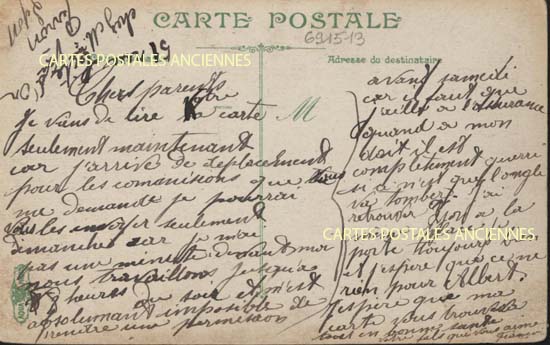 CARTE POSTALE
6915-13
Adresse du destinataire
CARTES POSTALES ANCIENNES
Chers parents
Je viens de lire votre carte
seulement maintenant
car j'arrive de deplacement
pour les comonisions que vous
me demande je pourrai
vous les envoyer seulement
dimanches car je n'ai
pas une minute devant moi
nous travaillons jusqu'a
8 heures du soir et n'est
absolumant imposible de
prendre une permission
avant samedi
car il faut que
j'aille a l'assurance
quand a mon
doit il est
completement guerri
il n'y a que l'ongle
va tomber j'ai
retrouver Léon a la
porte toujours
et j'espere que ce ne
rien pour Albert.
J'espere que ma
carte vous trouvera
tous en bonne santé
votre fils que vous aime
CARTES POSTALES ANCIENNES